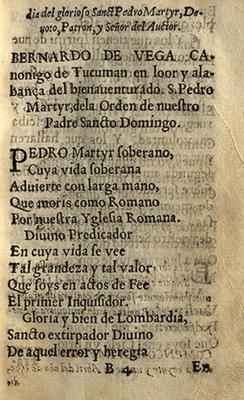 dia del glorioso Sanct Pedro Martyr, De-
uoto, Patrón, y Señor del Auctor.
BERNARDO DE VEGA CA-
nonigo de Tucuman en loor y ala-
bança del bienauenturado. S. Pedro
Martyr, dela Orden de nuestro
Padre Sancto Domingo.
PEDRO Martyr soberano,
Cuya vida soberana
Aduierte con larga mano,
Que moris como Romano
Por nuestra Yglesia Romana.
Diuino Predicador
En cuya vida se vee
Tal grandeza y tal valor
Que soys en actos de Fee
El primer Inquisidor.
Gloria y bien de Lombardia,
Sancto extirpador Diuino
De aquel error y heregia
B 4 En